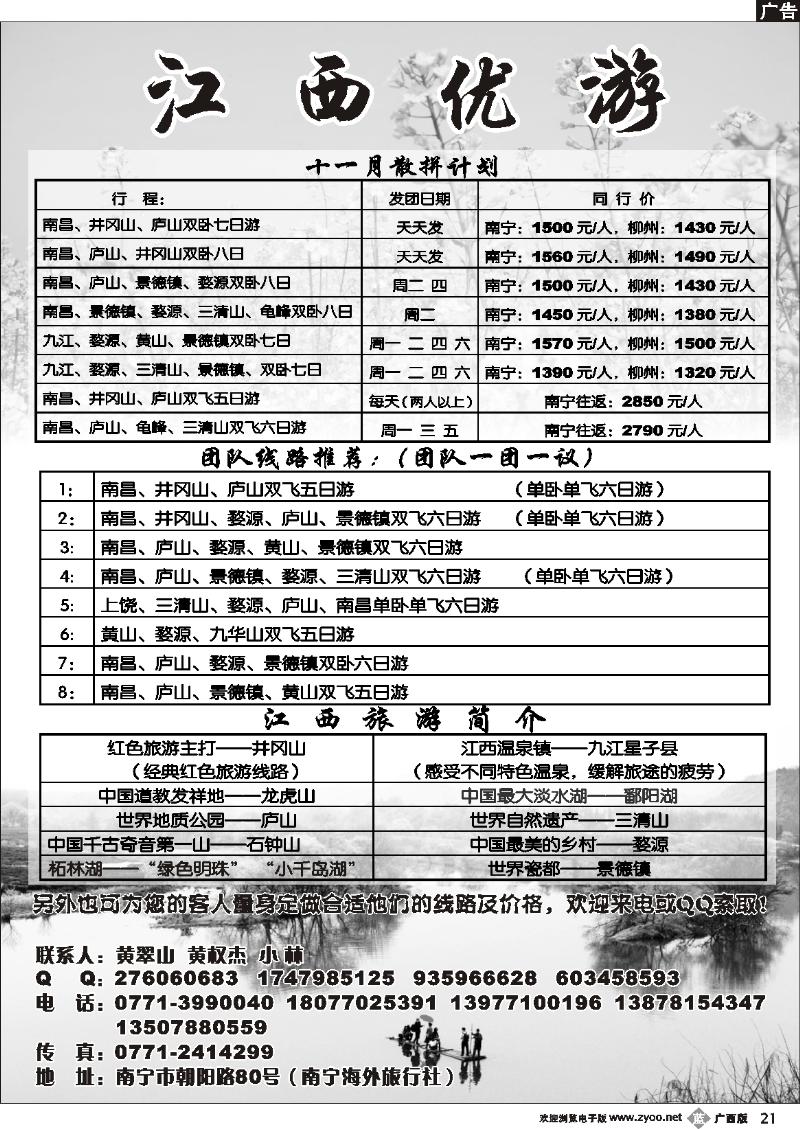 广告
江西优游
十一月散拼计划
行 程： 发团日期 同 行 价
南昌、井冈山、庐山双卧七日游 天天发 南宁：1500元/人，柳州：1430元/人
南昌、庐山、井冈山双卧八日 天天发 南宁：1560元/人，柳州：1490元/人
南昌、庐山、景德镇、婺源双卧八日 周二 四 南宁：1500元/人，柳州：1430元/人
南昌、景德镇、婺源、三清山、龟峰双卧八日 周二 南宁：1450元/人，柳州：1380元/人
九江、婺源、黄山、景德镇双卧七日 周一 二 四 六 南宁：1570元/人，柳州：1500元/人
九江、婺源、三清山、景德镇、双卧七日 周一 二 四 六 南宁：1390元/人，柳州：1320元/人
南昌、井冈山、庐山双飞五日游 每天（两人以上） 南宁往返：2850元/人
南昌、庐山、龟峰、三清山双飞六日游 周一 三 五 南宁往返：2790元/人
团队线路推荐：（团队一团一议）
1： 南昌、井冈山、庐山双飞五日游 （单卧单飞六日游）
2： 南昌、井冈山、婺源、庐山、景德镇双飞六日游 （单卧单飞六日游）
3： 南昌、庐山、婺源、黄山、景德镇双飞六日游
4： 南昌、庐山、景德镇、婺源、三清山双飞六日游 （单卧单飞六日游）
5： 上饶、三清山、婺源、庐山、南昌单卧单飞六日游
6： 黄山、婺源、九华山双飞五日游
7： 南昌、庐山、婺源、景德镇双卧六日游
8： 南昌、庐山、景德镇、黄山双飞五日游
江西旅游简介
红色旅游主打——井冈山 江西温泉镇——九江星子县
（经典红色旅游线路） （感受不同特色温泉，缓解旅途的疲劳）
中国道教发祥地——龙虎山 中国最大淡水湖——鄱阳湖
世界地质公园——庐山 世界自然遗产——三清山
中国千古奇音第一山——石钟山 中国最美的乡村——婺源
柘林湖——“绿色明珠” “小千岛湖” 世界瓷都——景德镇
另外也可为您的客人量身定做合适他们的线路及价格，欢迎来电或QQ索取！
联系人：黄翠山 黄权杰 小林
Q Q：276060683 1747985125 935966628 603458593
电 话：0771-3990040 18077025391 13977100196 13878154347
13507880559
传 真：0771-2414299
地 址：南宁市朝阳路80号（南宁海外旅行社）
欢迎浏览电子版 www.zyoo.net 蓝 广西版 21